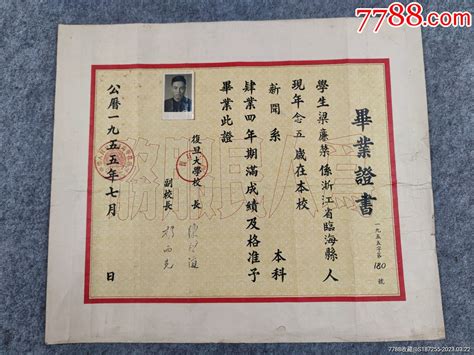 7788.com
畢業證書
一九五五字第180號
學生梁廉榮係浙江省臨海縣人
現年念五歲在本校
新聞系 本科
肄業四年期滿成績及格准予
畢業此證
復旦大學校長 陳望道
副校長 楊西光
公曆一九五五年七月 日
為人民服務